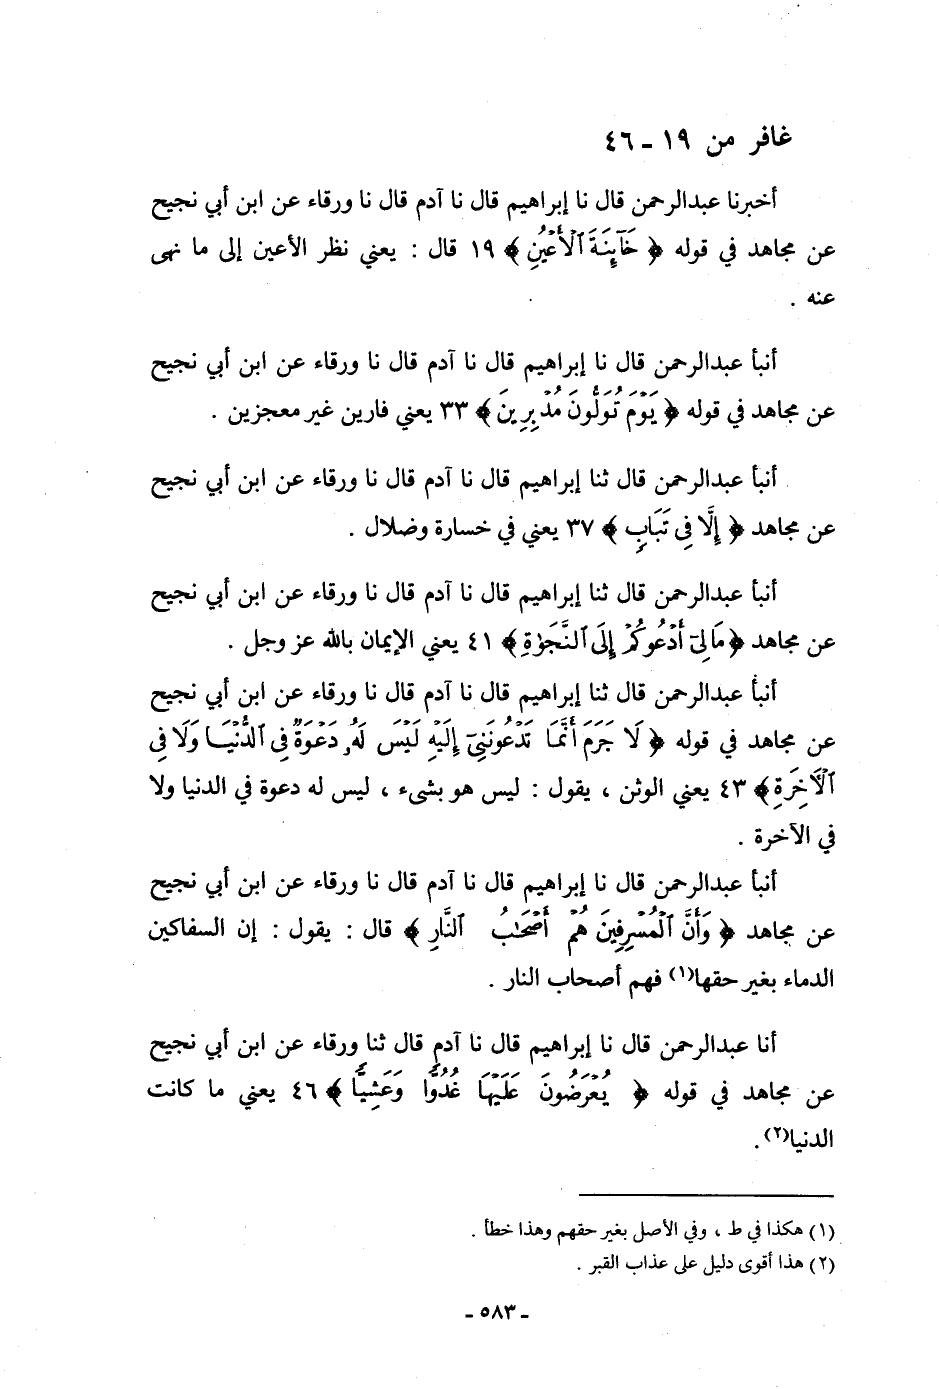 غافر من ١٩ - ٤٦
أخبرنا عبدالرحمن قال نا إبراهيم قال نا آدم قال نا ورقاء عن ابن أبي نجيح
عن مجاهد في قوله ﴿ خَآئِنَةَ ٱلْأَعْيُنِ ﴾ ١٩ قال : يعني نظر الأعين إلى ما نهى
عنه .
أنبأ عبدالرحمن قال نا إبراهيم قال نا آدم قال نا ورقاء عن ابن أبي نجيح
عن مجاهد في قوله ﴿ يَوْمَ تُوَلُّونَ مُدْبِرِينَ ﴾ ٣٣ يعني فارين غير معجزين .
أنبأ عبدالرحمن قال ثنا إبراهيم قال نا آدم قال نا ورقاء عن ابن أبي نجيح
عن مجاهد ﴿ إِلَّا فِى تَبَابٍ ﴾ ٣٧ يعني في خسارة وضلال .
أنبأ عبدالرحمن قال ثنا إبراهيم قال نا آدم قال نا ورقاء عن ابن أبي نجيح
عن مجاهد ﴿ مَا لِىٓ أَدْعُوكُمْ إِلَى ٱلنَّجَوٰةِ ﴾ ٤١ يعني الإيمان بالله عز وجل .
أنبأ عبدالرحمن قال ثنا إبراهيم قال نا آدم قال نا ورقاء عن ابن أبي نجيح
عن مجاهد في قوله ﴿ لَا جَرَمَ أَنَّمَا تَدْعُونَنِىٓ إِلَيْهِ لَيْسَ لَهُۥ دَعْوَةٌ فِى ٱلدُّنْيَا وَلَا فِى
ٱلْأَخِرَةِ ﴾ ٤٣ يعني الوثن ، يقول : ليس هو بشىء ، ليس له دعوة في الدنيا ولا
في الآخرة .
أنبأ عبدالرحمن قال نا إبراهيم قال نا آدم قال نا ورقاء عن ابن أبي نجيح
عن مجاهد ﴿ وَأَنَّ ٱلْمُسْرِفِينَ هُمْ أَصْحَٰبُ ٱلنَّارِ ﴾ قال : يقول : إن السفاكين
الدماء بغير حقها(١) فهم أصحاب النار .
أنا عبدالرحمن قال نا إبراهيم قال نا آدم قال ثنا ورقاء عن ابن أبي نجيح
عن مجاهد في قوله ﴿ يُعْرَضُونَ عَلَيْهَا غُدُوًّا وَعَشِيًّا ﴾ ٤٦ يعني ما كانت
الدنيا(٢).
(١) هكذا في ط ، وفي الأصل بغير حقهم وهذا خطأ .
(٢) هذا أقوى دليل على عذاب القبر .
- ٥٨٣ -